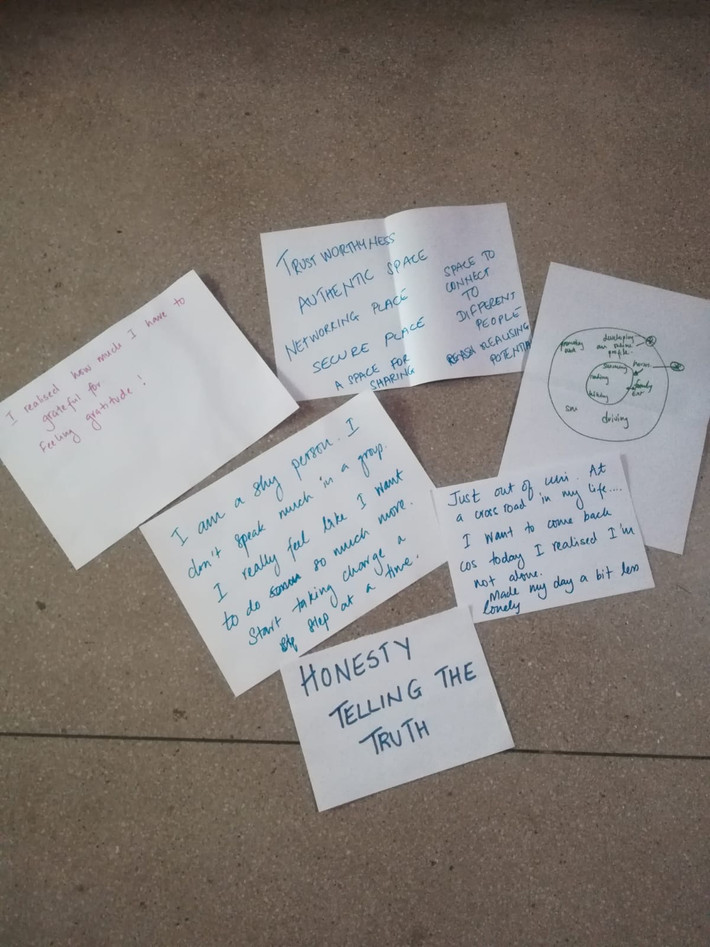 TRUSTWORTHYNESS
AUTHENTIC SPACE
NETWORKING PLACE
SECURE PLACE
A SPACE FOR
SHARING
SPACE TO
CONNECT
TO
DIFFERENT
PEOPLE
REALISING
POTENTIA
I realised how much I have to
grateful for
Feeling gratitude!
developing
people
family
driving
I am a shy person. I
don't speak much in a group.
I really feel like I want
to do so much more.
Start taking charge a
step at a time.
Just out of uni. At
a cross road in my life....
I want to come back
cos today I realised I'm
not alone.
Made my day a bit less
lonely
HONESTY
TELLING THE
TRUTH